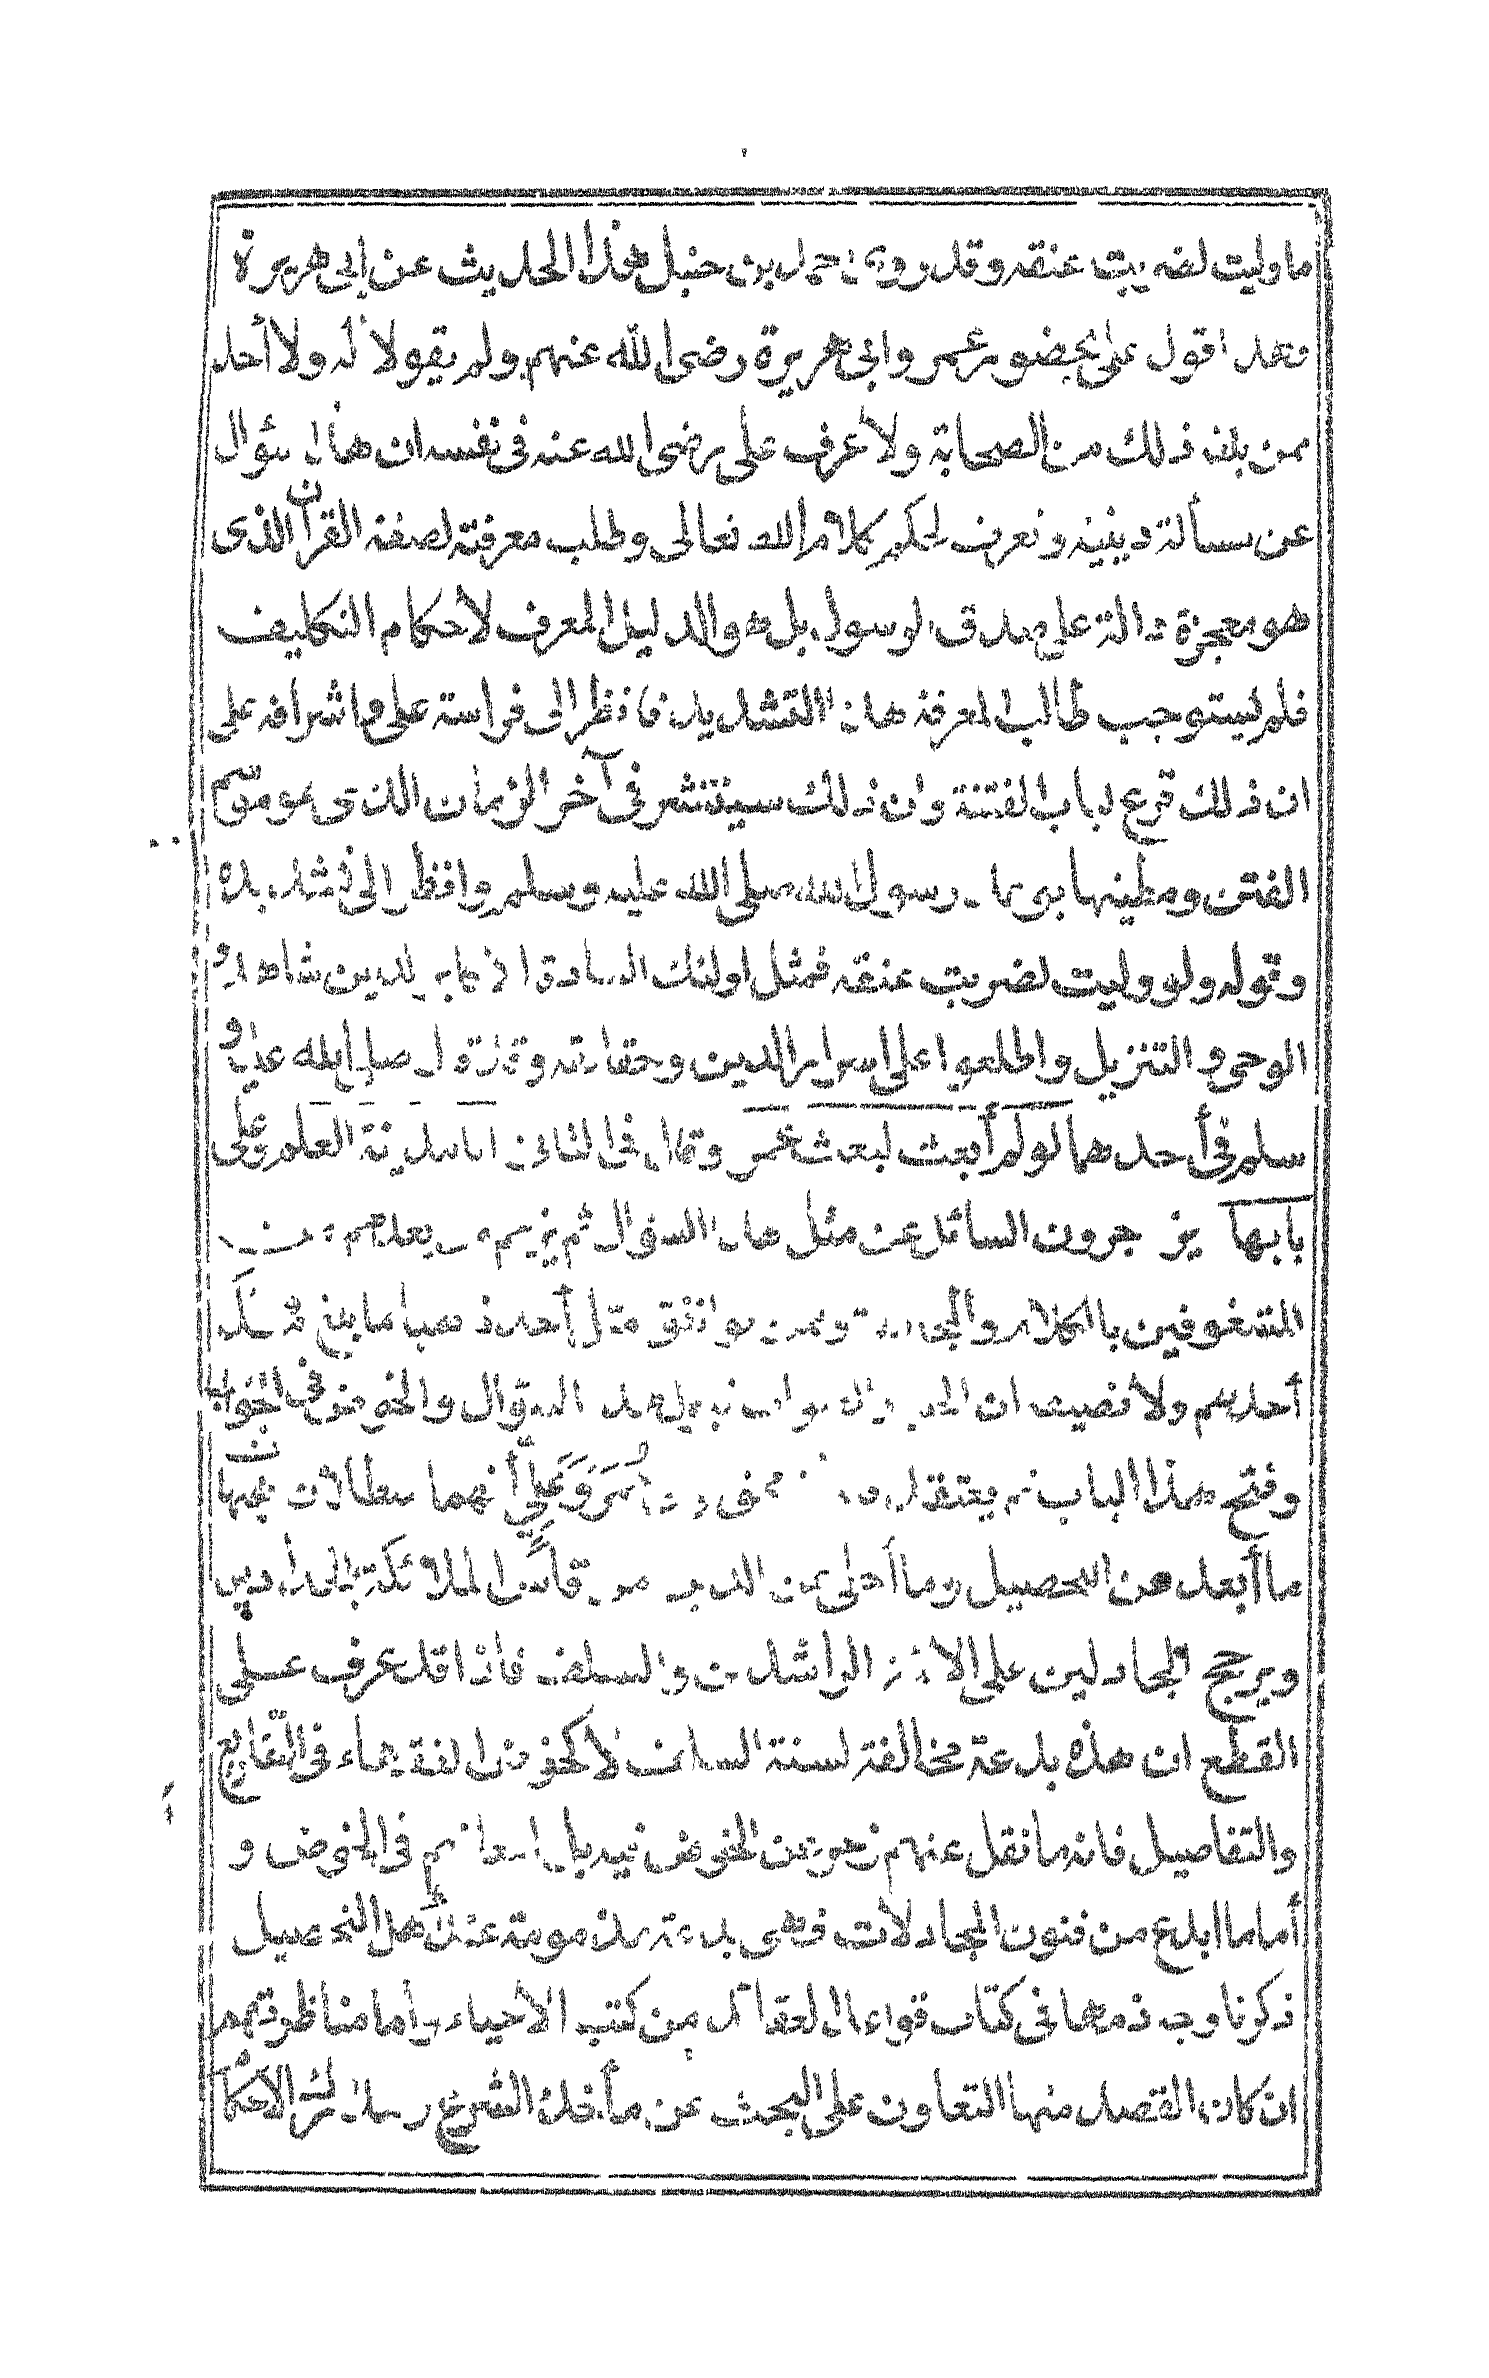 ما وليت لضربت عنقه وقد روى احمد بن حنبل هذا الحديث عن ابى هريرة
فهذا قول على بحضور عمر وابى هريرة رضى الله عنهم ولم يقولا له ولا أحد
ممن بلغه ذلك من الصحابة ولا عرف على رضى الله عنه فى نفسه ان هذا سؤال
عن مسألة دينية وتعرف لحكم كلام الله تعالى وطلب معرفته لصفة القرآن الذى
هو معجزة دالة على صدق الرسول بل هو الدليل المعرف لأحكام التكليف
فلم يستوجب طالب المعرفة هذا التشديد فانظر الى فراسة على واشرافه على
ان ذلك قرع لباب الفتنة وان ذلك سينتشر فى آخر الزمان الذى هو موسم
الفتن ومطيتها بوعد رسول الله صلى الله عليه وسلم وانظر الى تشديده
وقوله ولو وليت لضربت عنقه فمثل اولئك السادة الاكابر الذين شاهدوا
الوحى والتنزيل واطلعوا على اسرار الدين وحقائقه وقد قال صلى الله عليه و
سلم فى أحدهما لو لم أبعث لبعث عمر وقال فى الثانى انا مدينة العلم وعلى
بابها يزجرون السائل عن مثل هذا السؤال ثم يزعم من بعدهم من
المشغوفين بالكلام والمجادلة وممن لو انفق مثل أحد ذهبا ما بلغ مد
أحدهم ولا نصيفه ان الحق والصواب قبول هذا السؤال والخوض فى الجواب
وفتح هذا الباب ثم يعتقد فيه انه محق و عمر وعلى أنهما مبطلان هيهات
ما أبعد عن التحصيل وما أخلى عن الدين من قاس الملائكة بالحدادين
ويرجح المجادلين على الأئمة الراشدين والسلف فاذا قد عرف على
القطع ان هذه بدعة مخالفة لسنة السلف لا كخوض الفقهاء فى التفاريع
والتفاصيل فانه ما نقل عنهم زجر عن الخوض فيه بل فى الخوض و
أما ما ابدع من فنون المجادلات فهى بدعة مذمومة عند أهل التحصيل
ذكرنا وجه ذمها فى كتاب قواعد العقائد من كتب الأحياء وأما مناظرتهم
ان كان القصد منها التعاون على البحث عن مأخذ الشرع ومدارك الأحكام